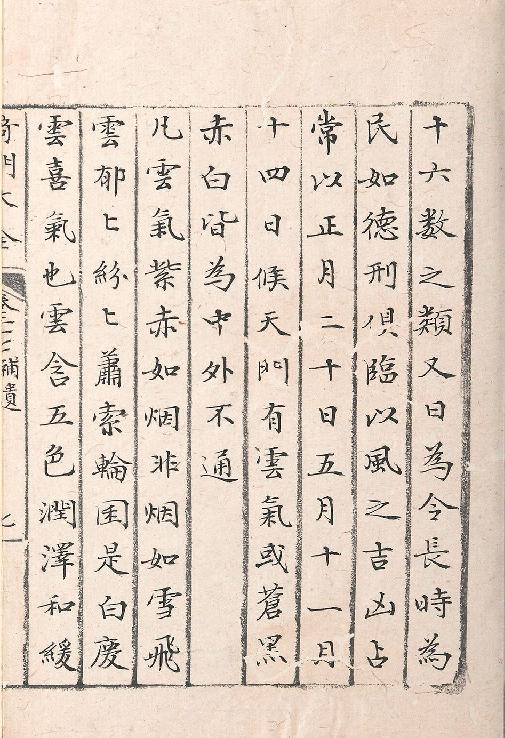 十六数之類又曰為令長時為
民如德刑俱臨以風之吉凶占
常以正月二十日五月十一月
十四日候天門有雲氣或蒼黑
赤白皆為中外不通
凡雲氣紫赤如烟非烟如雪飛
雲郁〻紛〻蕭索輪囷是白慶
雲喜氣也雲含五色潤澤和緩
奇門大全 補遺 七